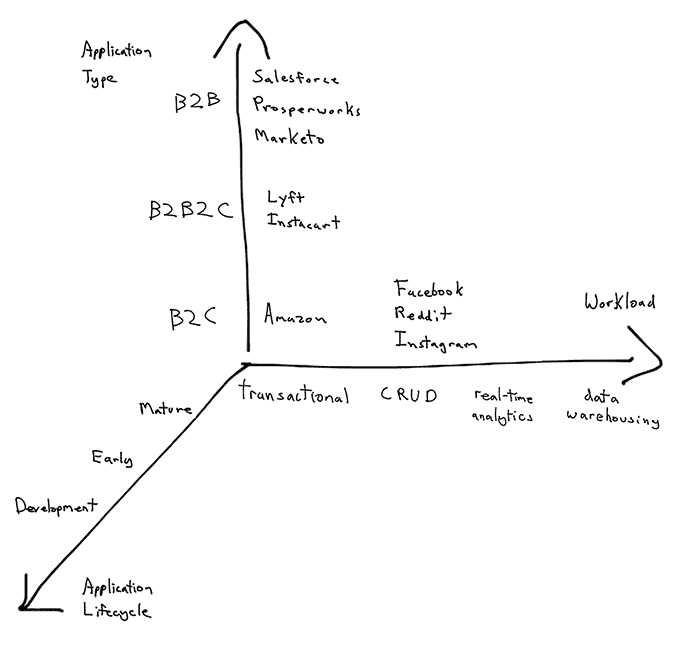 Application
Type
B2B
Salesforce
Prosperworks
Marketo
B2B2C
Lyft
Instacart
B2C
Amazon
Facebook
Reddit
Instagram
Workload
transactional
CRUD
real-time
analytics
data
warehousing
Mature
Early
Development
Application
Lifecycle